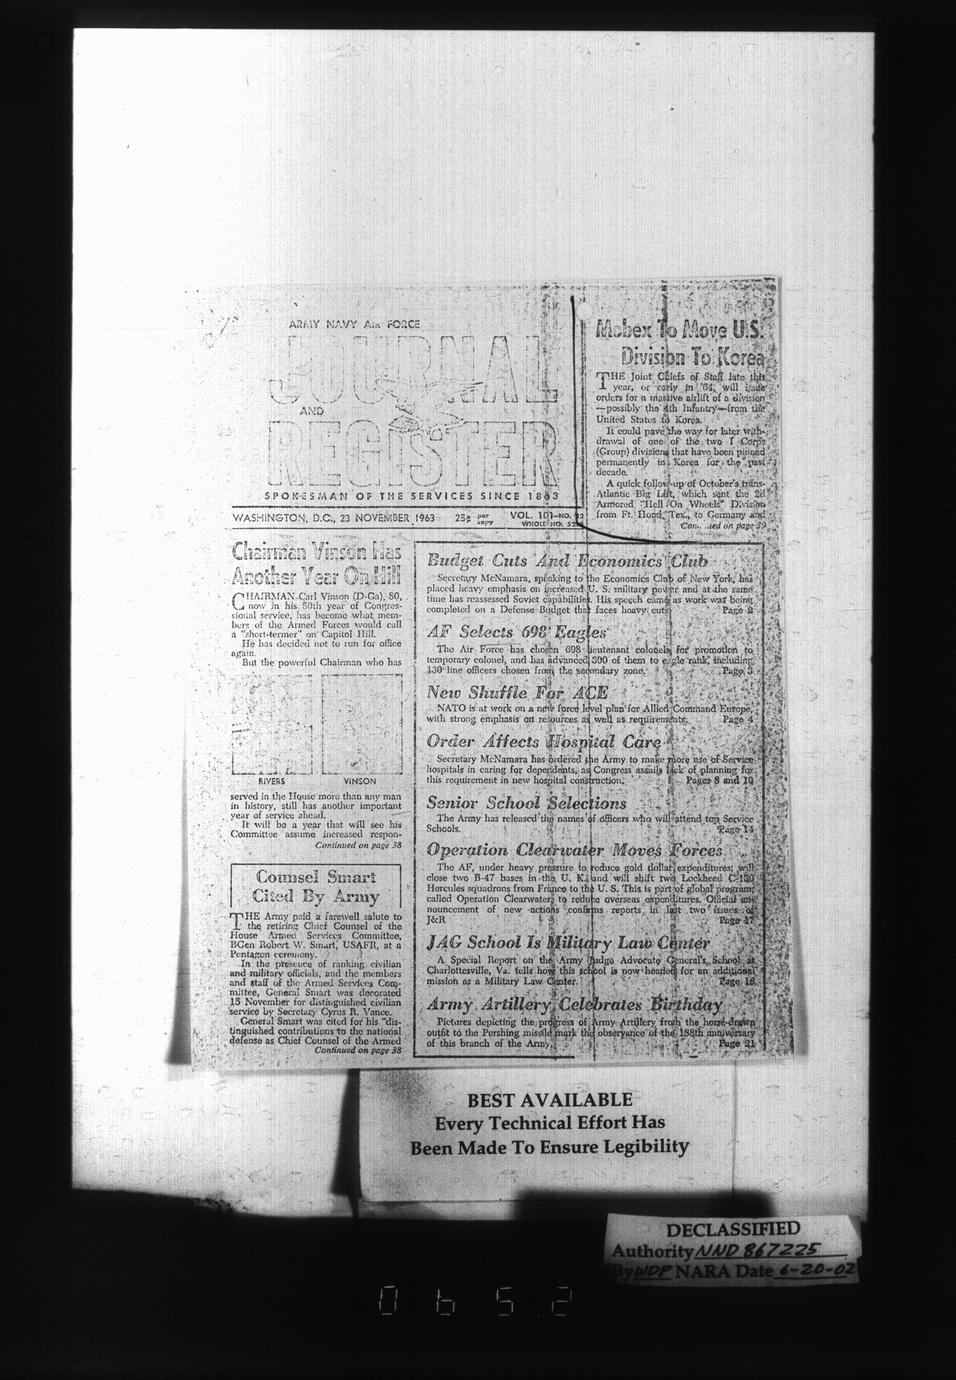 ARMY NAVY Air FORCE
JOURNAL
AND
REGISTER
SPOKESMAN OF THE SERVICES SINCE 1863
WASHINGTON, D.C., 23 NOVEMBER 1963 25¢ per copy VOL. 101—NO.
WHOLE NO.
Mobex To Move U.S.
Division To Korea
THE Joint Chiefs of Staff late this
year, or early in '64, will issue
orders for a massive airlift of a division
—possibly the 4th Infantry—from the
United States to Korea.
It could pave the way for later with-
drawal of one of the two I Corps
(Group) divisions that have been pinned
permanently in Korea for the past
decade.
A quick follow-up of October's trans-
Atlantic Big Lift, which sent the 2d
Armored "Hell On Wheels" Division
from Ft. Hood, Tex., to Germany and
on page 39
Chairman Vinson Has
Another Year On Hill
CHAIRMAN Carl Vinson (D-Ga), 80,
now in his 50th year of Congres-
sional service, has become what mem-
bers of the Armed Forces would call
a "short-termer" on Capitol Hill.
He has decided not to run for office
again.
But the powerful Chairman who has
RIVERS VINSON
served in the House more than any man
in history, still has another important
year of service ahead.
It will be a year that will see his
Committee assume increased respon-
Continued on page 38
Counsel Smart
Cited By Army
THE Army paid a farewell salute to
the retiring Chief Counsel of the
House Armed Services Committee,
BGen Robert W. Smart, USAFR, at a
Pentagon ceremony.
In the presence of ranking civilian
and military officials, and the members
and staff of the Armed Services Com-
mittee, General Smart was decorated
15 November for distinguished civilian
service by Secretary Cyrus R. Vance.
General Smart was cited for his "dis-
tinguished contributions to the national
defense as Chief Counsel of the Armed
Continued on page 38
Budget Cuts And Economics Club
Secretary McNamara, speaking to the Economics Club of New York, has
placed heavy emphasis on increased U. S. military power and at the same
time has reassessed Soviet capabilities. His speech came as work was being
completed on a Defense Budget that faces heavy cuts. Page 2
AF Selects 698 Eagles
The Air Force has chosen 698 lieutenant colonels for promotion to
temporary colonel, and has advanced 300 of them to eagle rank, including
130 line officers chosen from the secondary zone. Page 3
New Shuffle For ACE
NATO is at work on a new force level plan for Allied Command Europe,
with strong emphasis on resources as well as requirements. Page 4
Order Affects Hospital Care
Secretary McNamara has ordered the Army to make more use of Service
hospitals in caring for dependents, as Congress assails lack of planning for
this requirement in new hospital construction. Pages 8 and 10
Senior School Selections
The Army has released the names of officers who will attend top Service
Schools. Page 14
Operation Clearwater Moves Forces
The AF, under heavy pressure to reduce gold dollar expenditures, will
close two B-47 bases in the U. K. and will shift two Lockheed C-130
Hercules squadrons from France to the U. S. This is part of global program,
called Operation Clearwater, to reduce overseas expenditures. Official an-
nouncement of new actions confirms reports in last two issues of
J&R Page 17
JAG School Is Military Law Center
A Special Report on the Army Judge Advocate General's School at
Charlottesville, Va. tells how this school is now headed for an additional
mission as a Military Law Center. Page 18
Army Artillery Celebrates Birthday
Pictures depicting the progress of Army Artillery from the horse-drawn
outfit to the Pershing missile mark the observance of the 188th anniversary
of this branch of the Army. Page 21
BEST AVAILABLE
Every Technical Effort Has
Been Made To Ensure Legibility
DECLASSIFIED
Authority NND 867225
By WDP NARA Date 6-20-02
0652